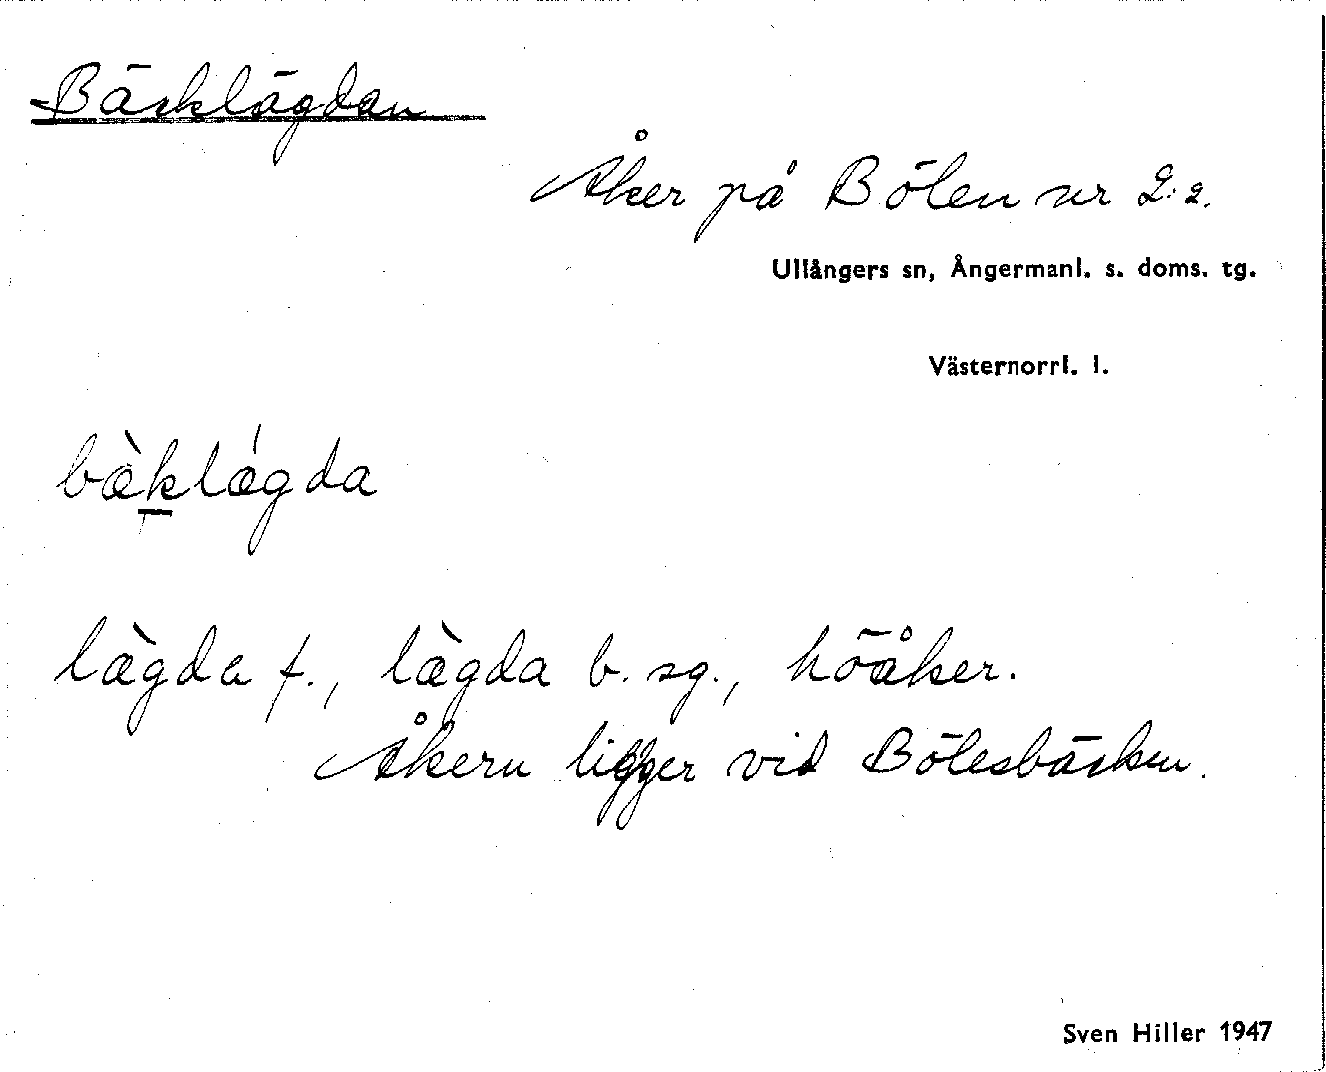 Bäcklägdan
Åker på Bölen nr 2:2.
Ullångers sn, Ångermanl. s. doms. tg.
Västernorrl. l.
bæ̀klǽgda
læ̀gda f., læ̀gda b. sg., höåker.
Åkern ligger vid Bölesbäcken.
Sven Hiller 1947